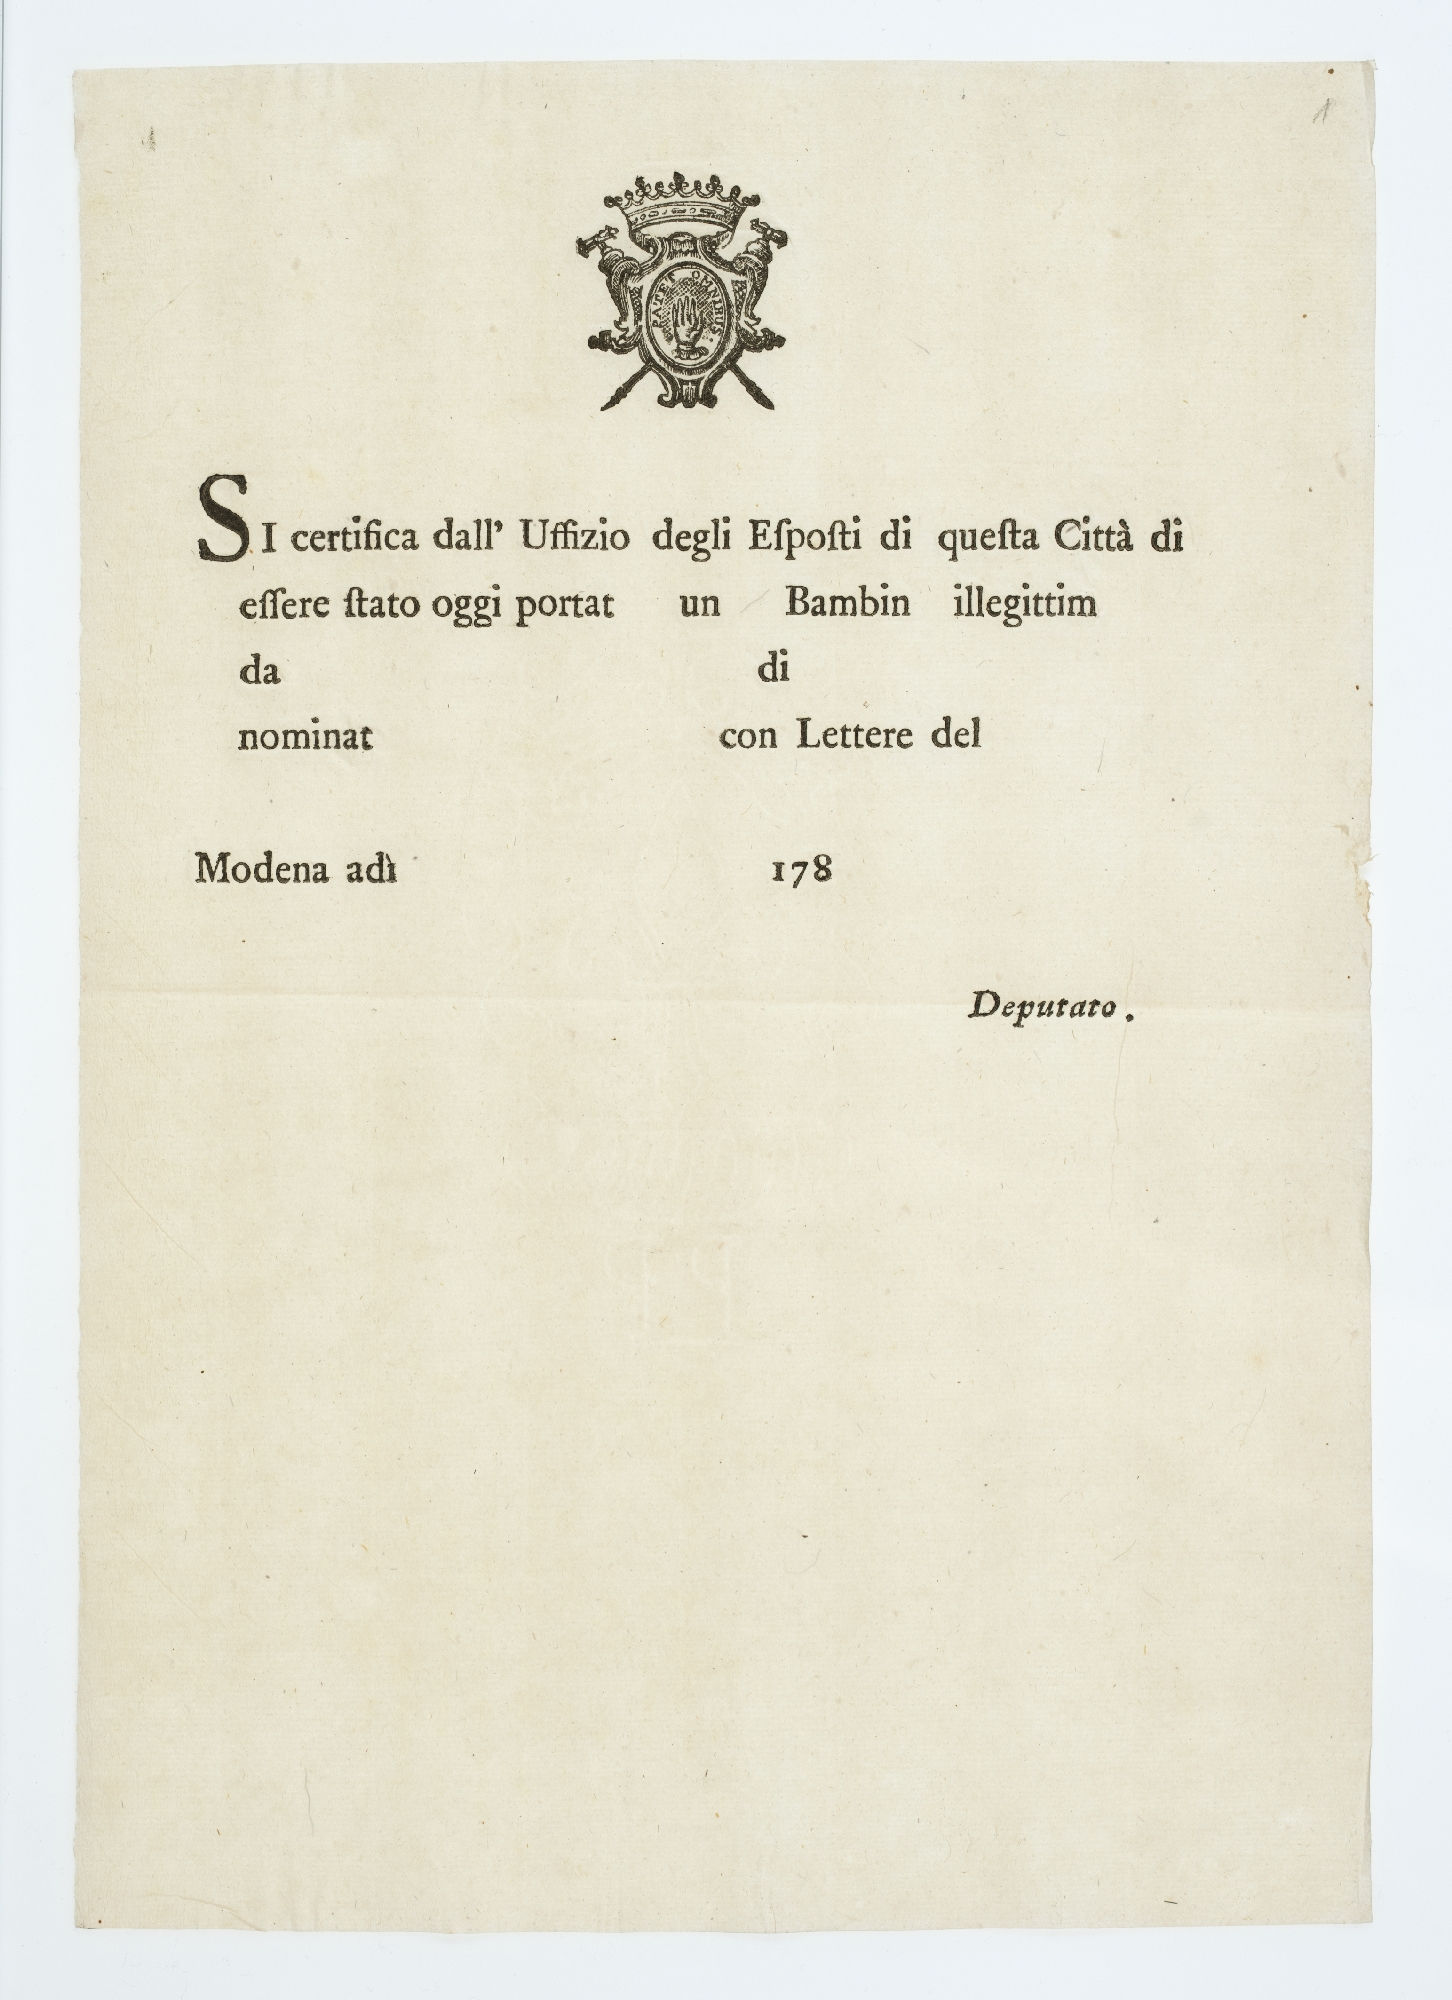 PATET OMNIBUS.
1
SI certifica dall' Uffizio degli Eſpoſti di queſta Città di
eſſere ſtato oggi portat un Bambin illegittim
da di
nominat con Lettere del
Modena adì 178
Deputato.